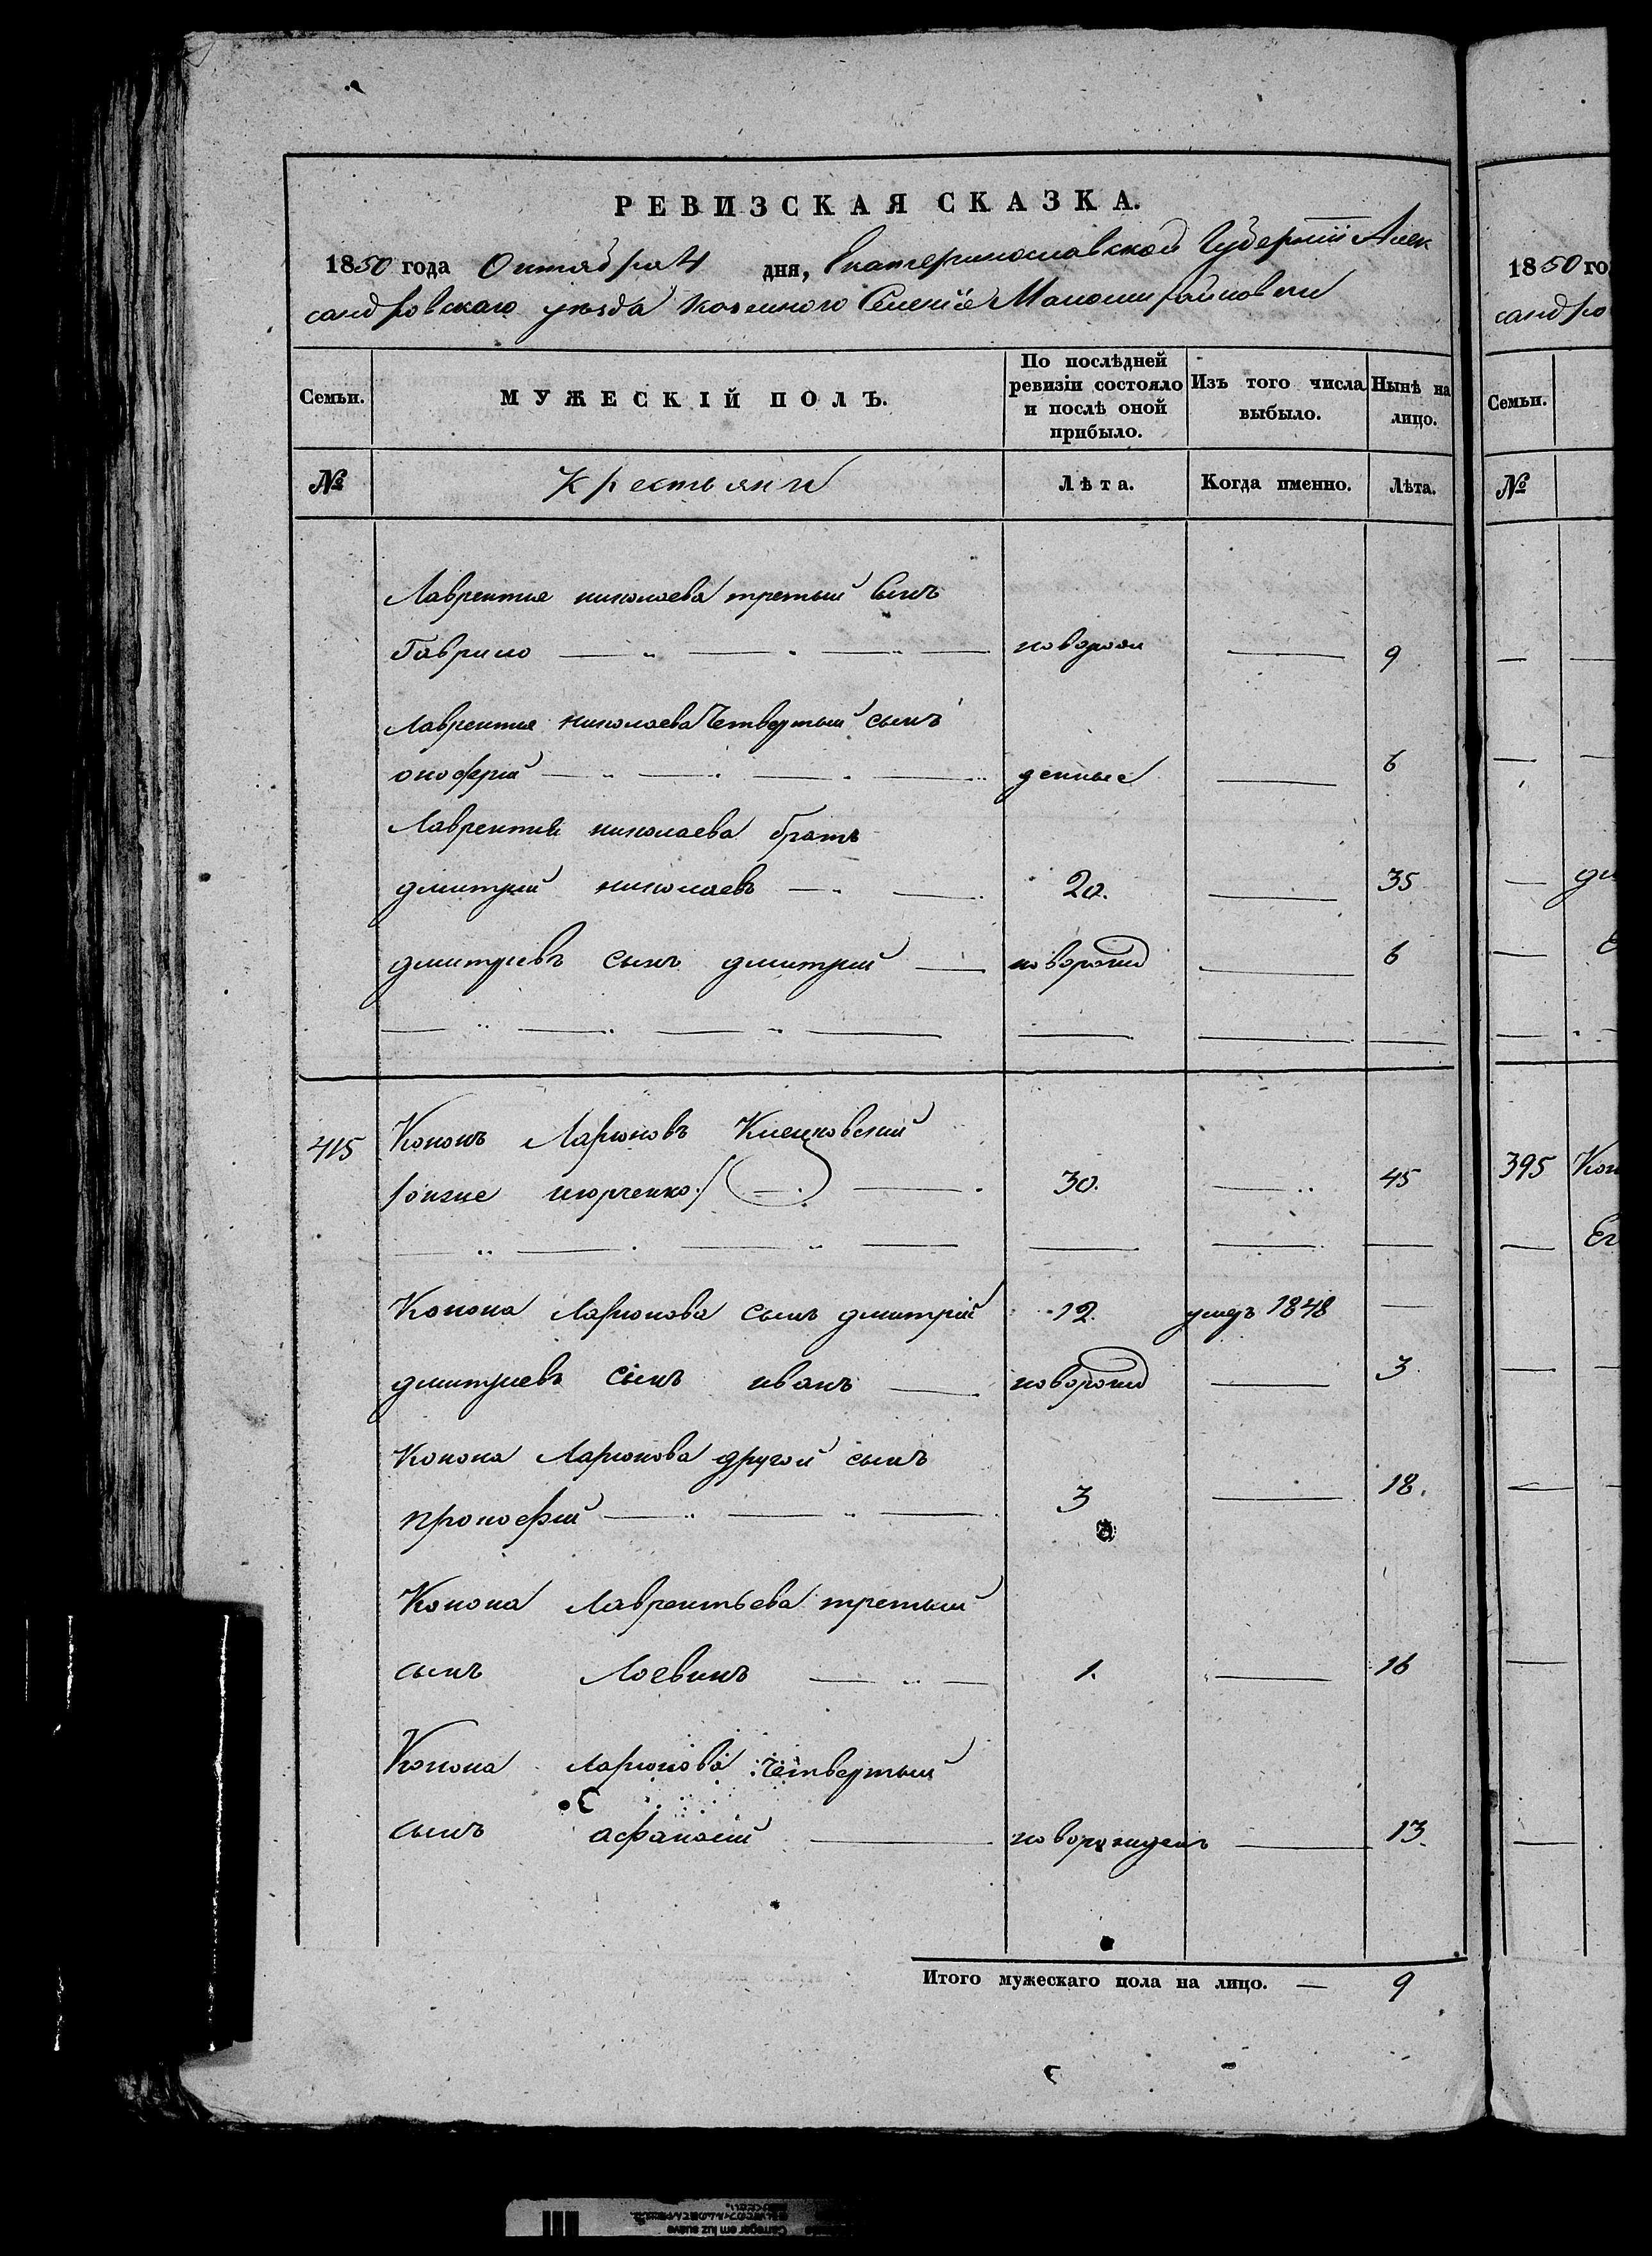 РЕВИЗСКАЯ СКАЗКА.
1850 года Октября 4 дня, Екатеринославской Губернiи Алек
сандровскаго уѣзда казенного Селенiя Маломихайловки
Семьи.
МУЖЕСКІЙ ПОЛЪ.
По послѣдней ревизіи состояло и послѣ оной прибыло.
Изъ того числа выбыло.
Нынѣ на лицо.
№ Крестьяни Лѣта. Когда именно. Лѣта.
Лаврентия николаева третьий Сынъ
Гаврило новорож 9
Лаврентия николаева Четвертый сынъ
онофрiй денные 6
Лаврентия николаева братъ
дмитрий николаевъ 20. 35
дмитриевъ сынъ дмитрий новорожд 6
415 Кононъ Ларионовъ
30. 45
Конона Ларионова сынъ дмитрiй 12. умеръ 1848
дмитриевъ сынъ иванъ новорожд 3
Конона Ларионова другой сынъ
прокофий 3 18.
Конона Лаврентьева третьий
сынъ Логвинъ 1. 16
Конона Ларионова Четвертый
сынъ афанасий новорожденъ 13
Итого мужескаго пола на лицо. — 9
1850 го
сандро
Семьи.
№
395 Кон